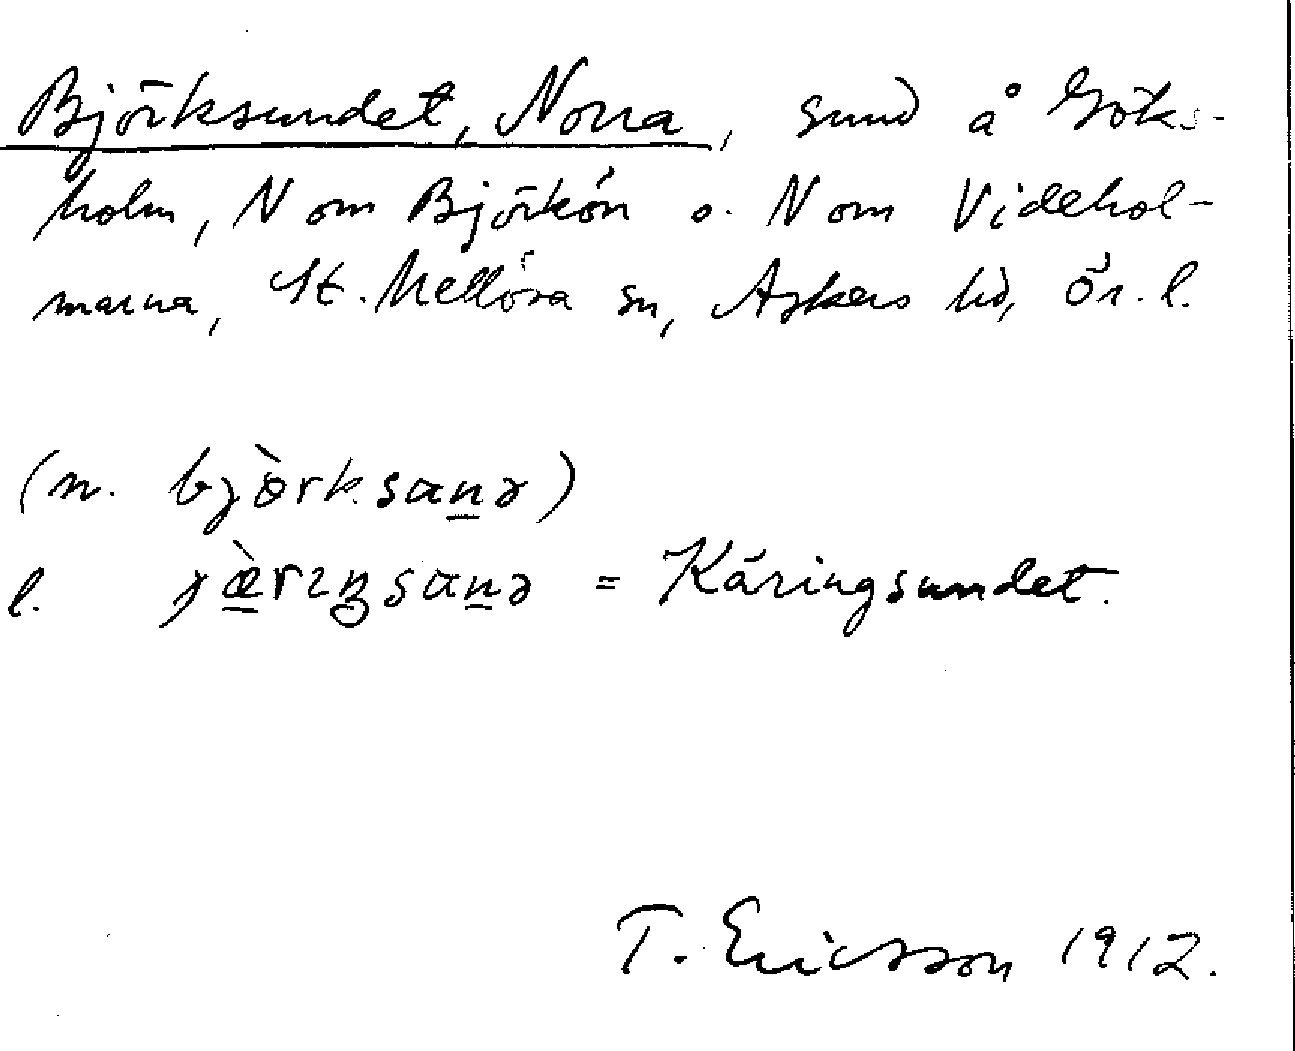 Björksundet, Norra, sund å Göks-
holm, N om Björkön o. N om Videhol-
marna, St. Mellösa sn, Askers hd, Ör. l.
(n. bjòrksanə)
l. = Käringsundet.
T. Ericsson 1912.